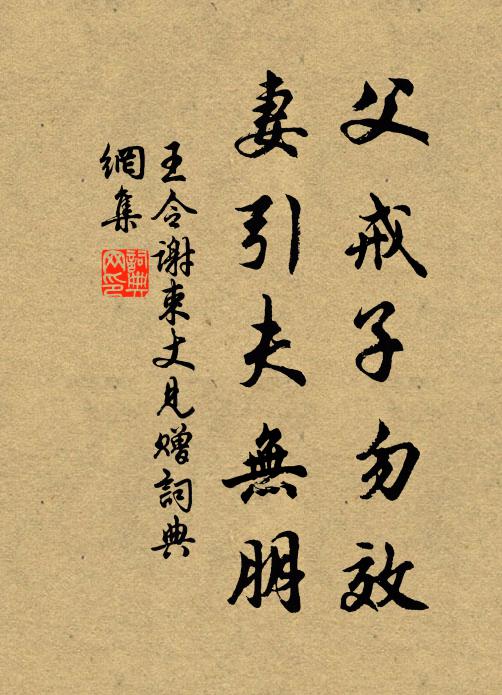 父戒子勿效
妻引夫無朋
王令謝束丈見贈詞典
網集
詞典網印